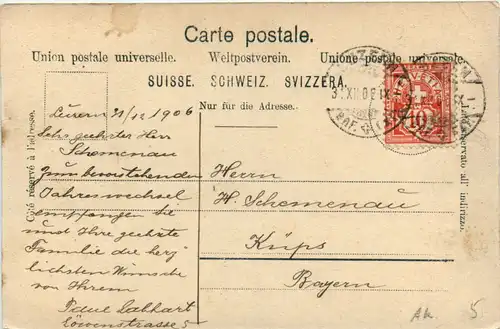 Carte postale.
Union postale universelle. Weltpostverein. Unione postale universale.
SUISSE. SCHWEIZ. SVIZZERA.
Nur für die Adresse.
Côté réservé à l'adresse.
Luzern 31/12 1906
Sehr geehrter Herr
Schemenau
zum bevorstehenden
Jahreswechsel
empfangen Sie
und Ihre geehrte
Familie die herz
lichsten Wünsche
von Ihrem
Löwenstrasse 5
Herrn
H. Schemenau
Küps
Bayern
HELVETIA
10
5